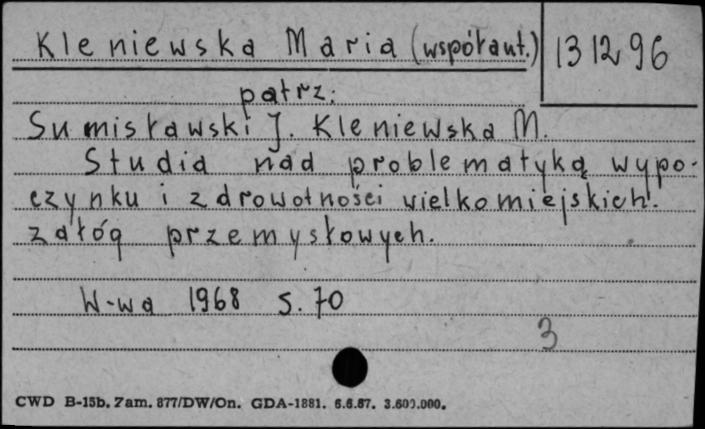 Kleniewska Maria (współaut.)
131296
patrz:
Sumisławski J. Kleniewska M.
Studia nad problematyką wypo-
czynku i zdrowotności wielkomiejskich
załóg przemysłowych.
W-wa 1968 s. 70
3
CWD B-15b. Zam. 877/DW/On. GDA-1881. 6.6.67. 3.600.000.